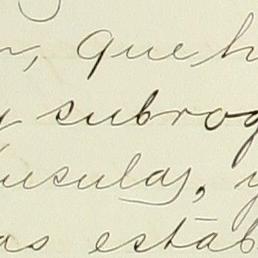 , que h
y subrog
usulas, y
as estab